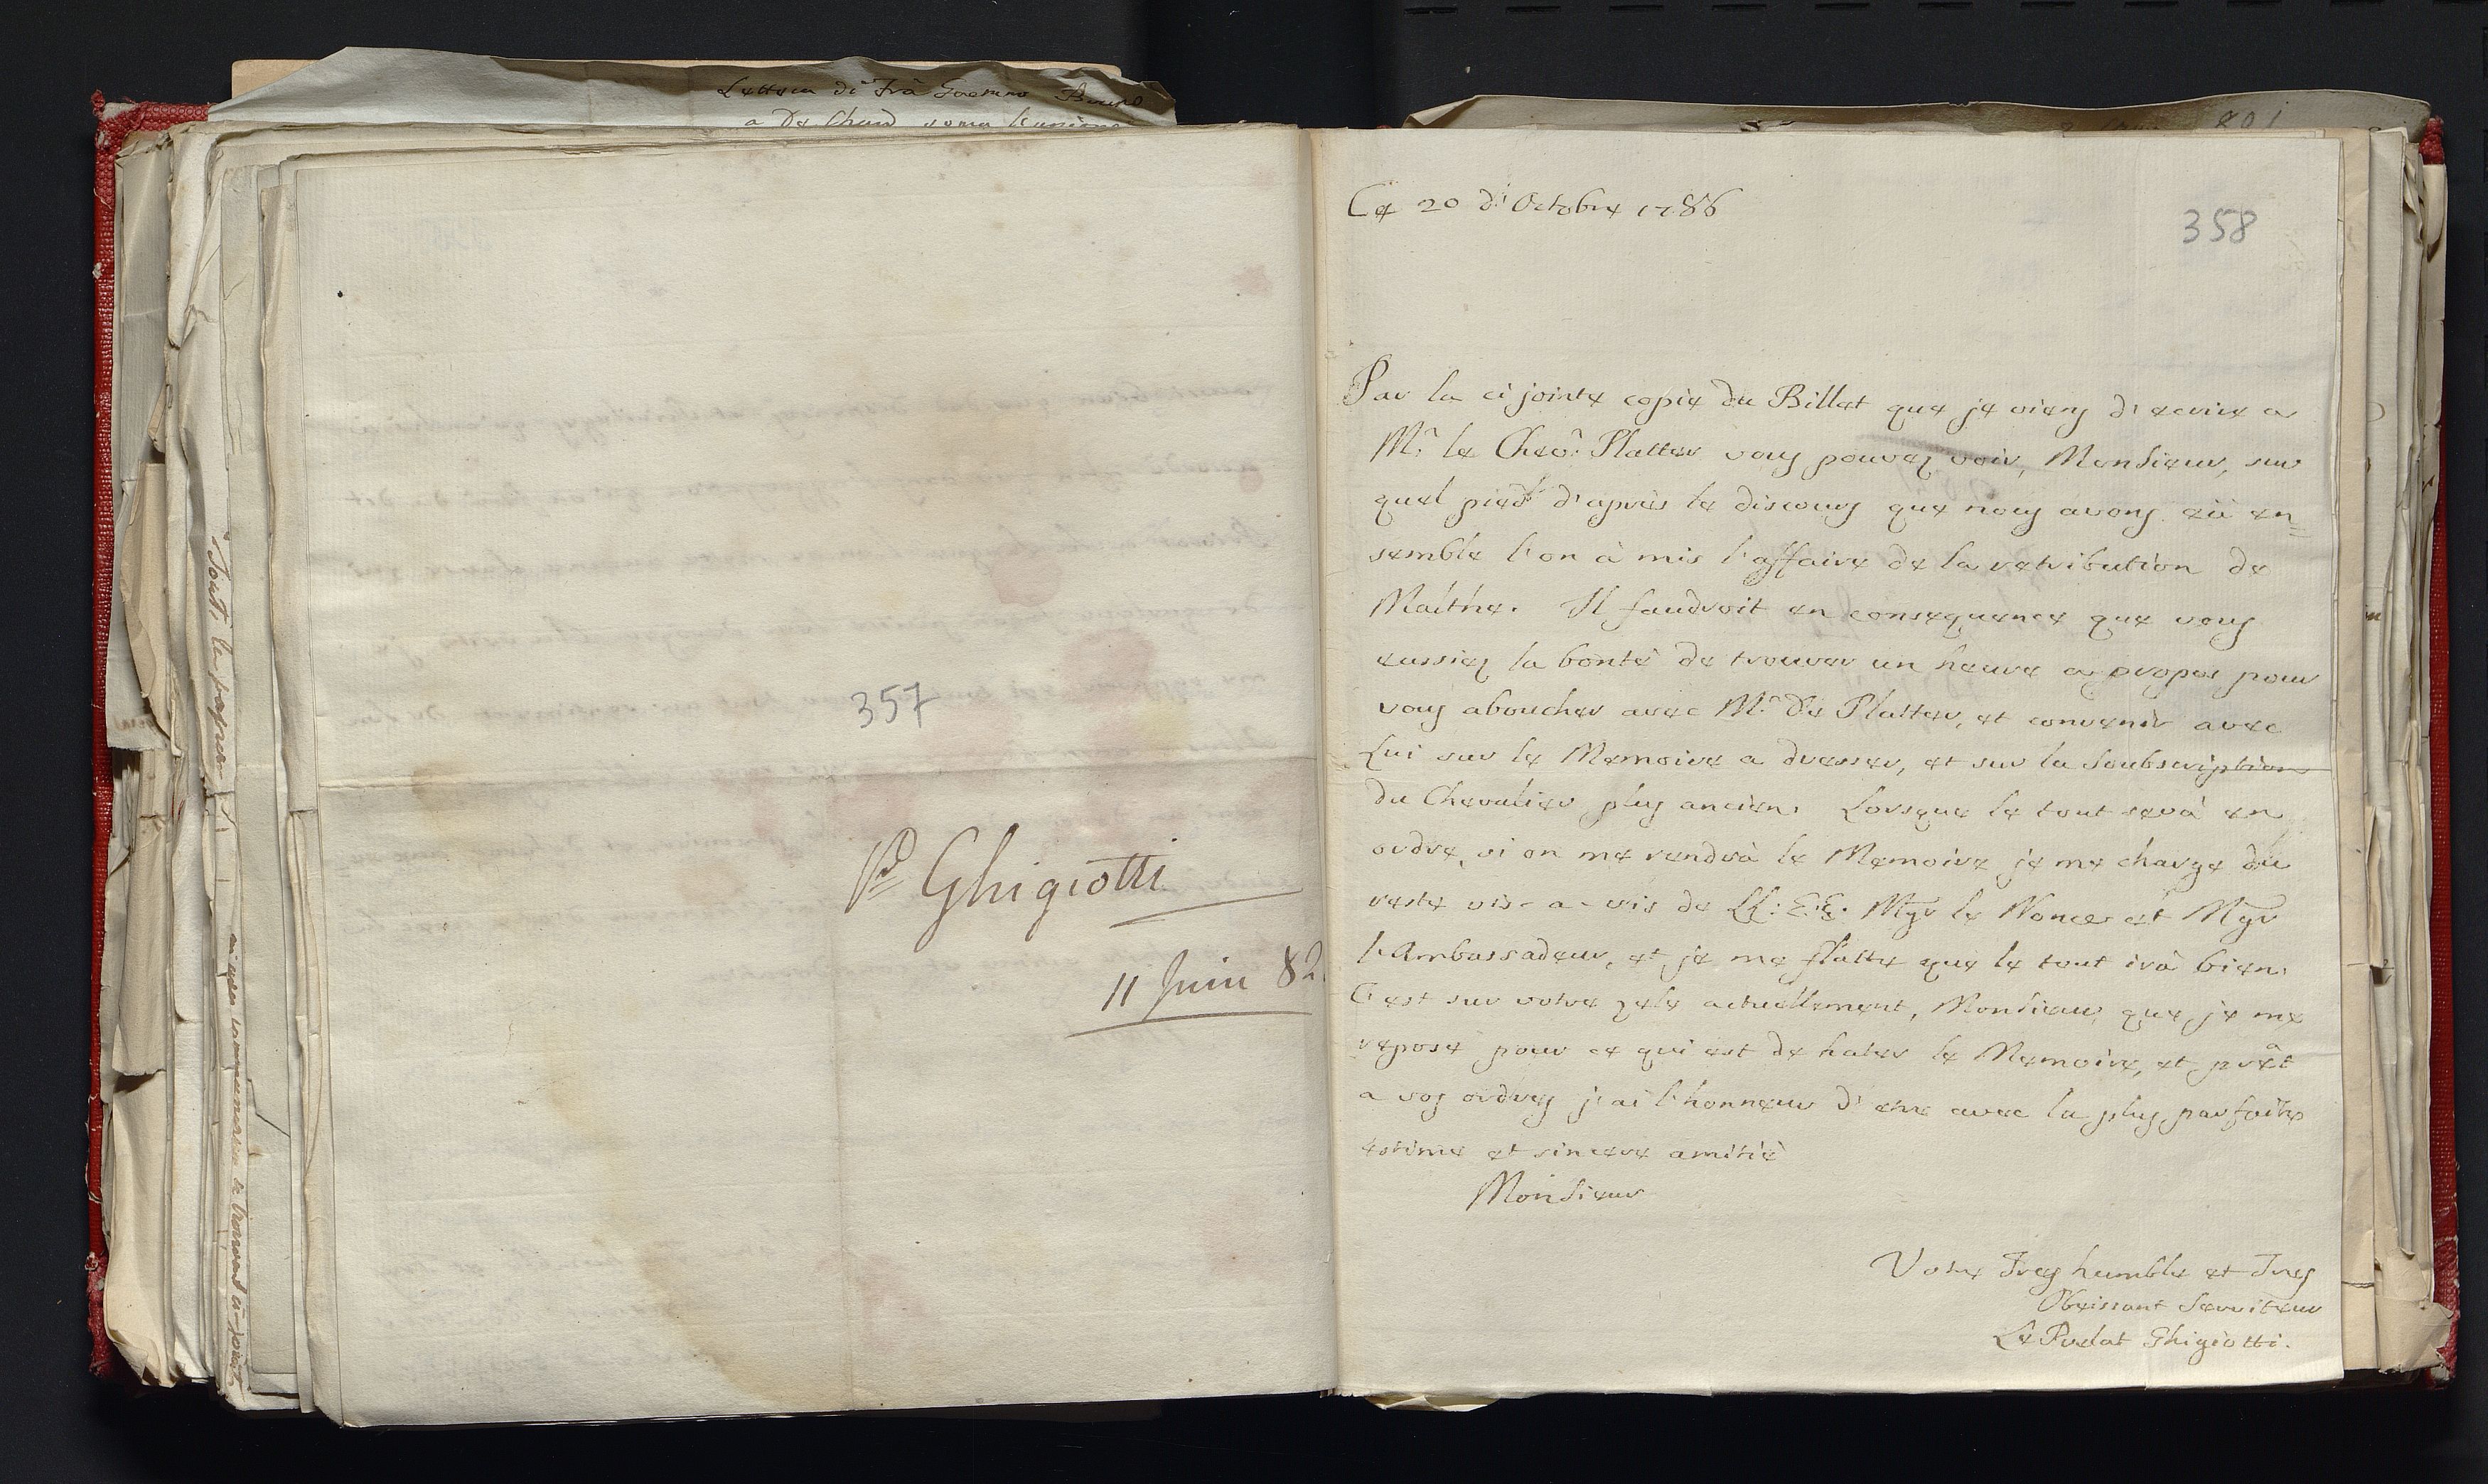 Lettera di Frà Gaetano Bruno
357
Pd Ghigiotti
11 Juin 82
358
Ce 20 d'Octobre 1786
Par la ci jointe copie du Billet que je viens d'ecrire a
Mr. le Chevr. Platter vous pouvez voir, Monsieur, sur
quel pied d'après le discours que nous avons eü en=
semble l'on à mis l'affaire de la retribution de
Malthe. Il faudroit en consequence que vous
eussiez la bonté de trouver un heure a propos pour
vous aboucher avec Mr. de Platter, et convenir avec
Lui sur le Memoire a dresser, et sur la soubscription
du Chevalier plus ancien. Lorsque le tout serà en
ordre, si on me rendrà le Memoire je me charge du
reste vis-a-vis de LL: EE: Mgr le Nonce et Mgr
l'Ambassadeur, et je me flatte que le tout irà bien.
C'est sur votre zele actuellement, Monsieur, que je me
repose pour ce qui est de hater le Memoire, et prêt
a vos ordres j'ai l'honneur d'etre avec la plus parfaite
estime et sincere amitié
Monsieur
Votre Tres humble et Tres
Obeissant Serviteur
Le Prelat Ghigiotti.